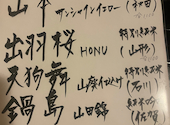 山本 サンシャインイエロー（秋田）
出羽桜 HONU 特別純米（山形）
天狗舞 山廃仕込み 特別純米（石川）
鍋島 山田錦 純米吟醸（佐賀）